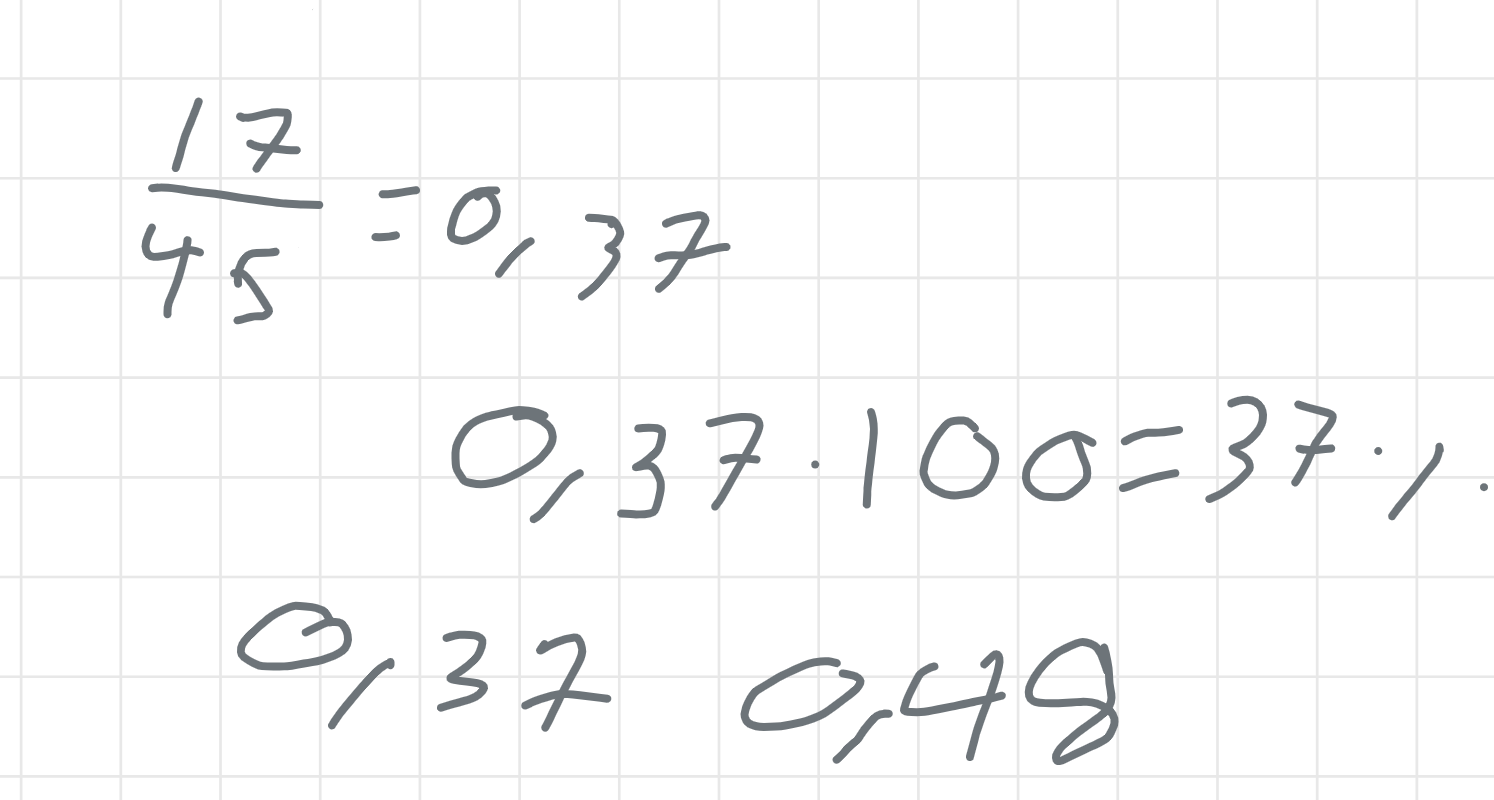 17/45 = 0,37
0,37 · 100 = 37 %
0,37 0,48